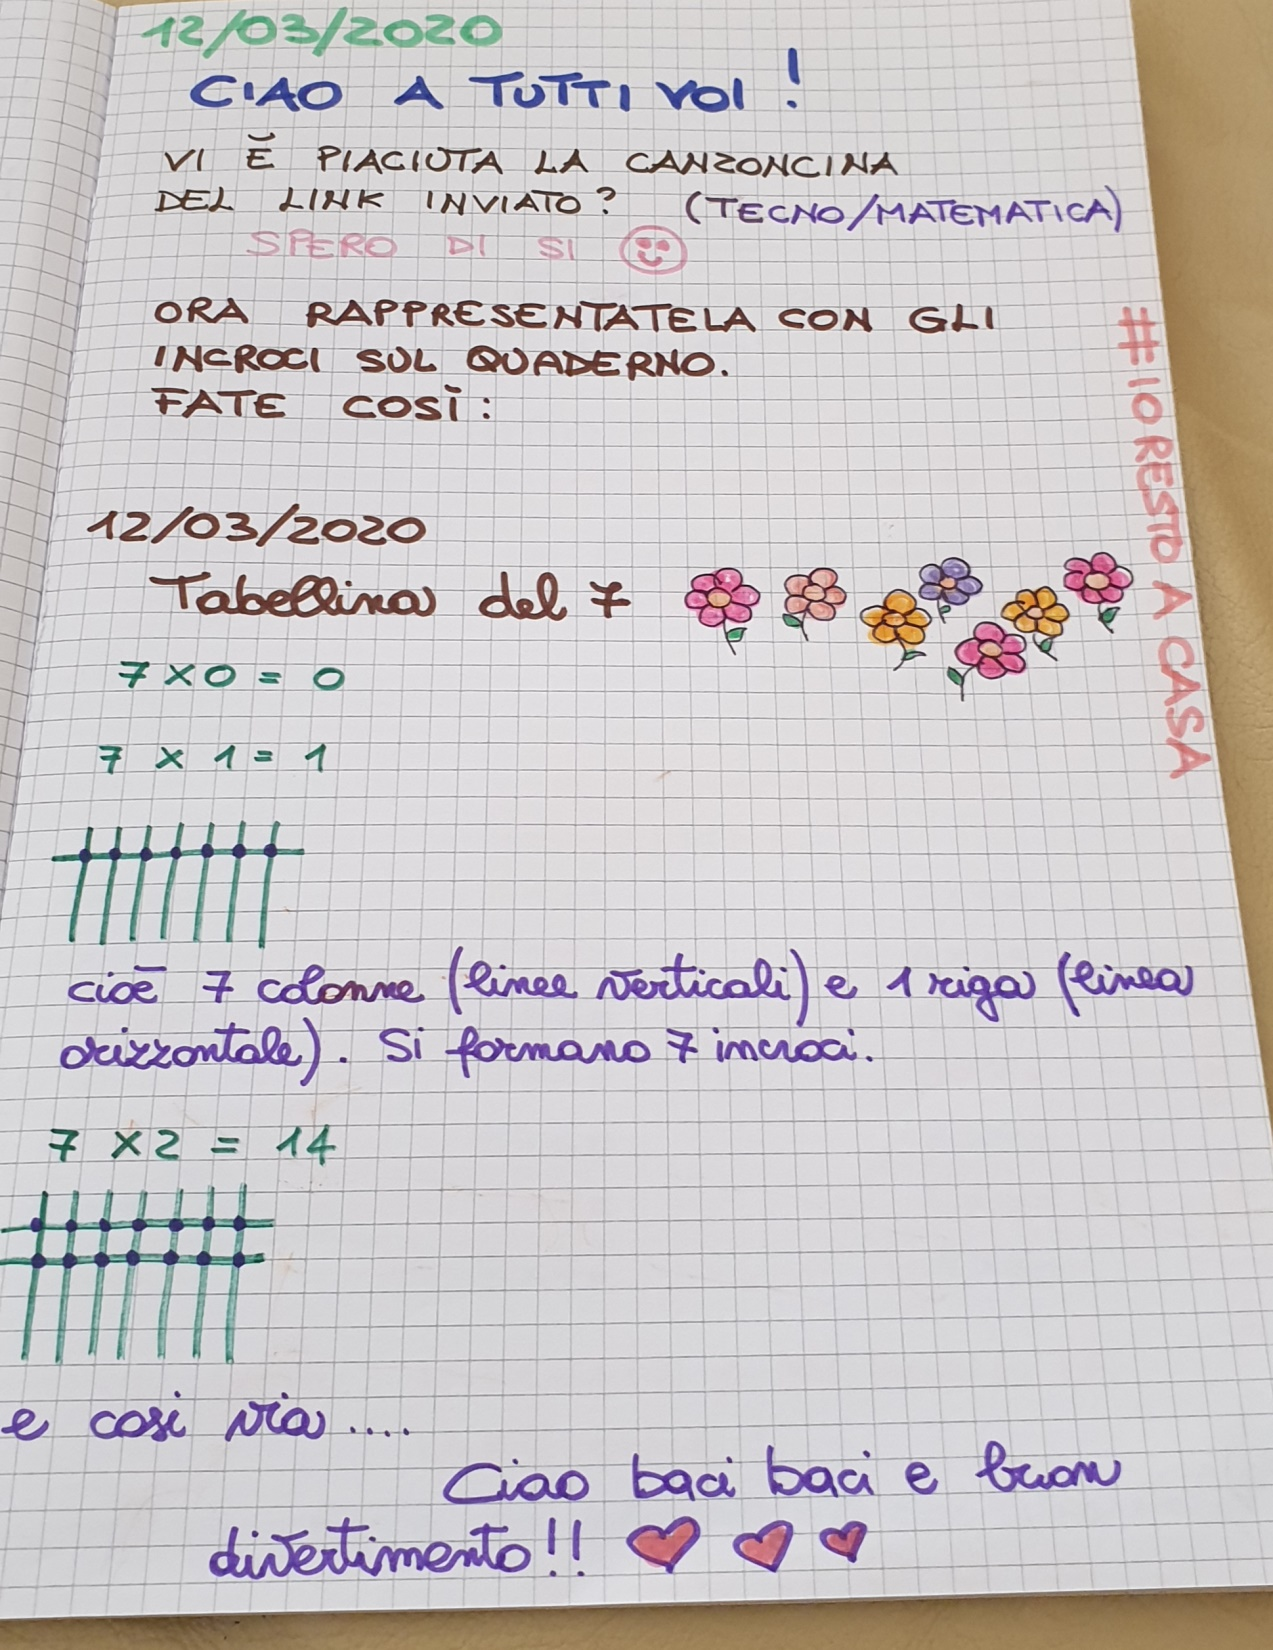 12/03/2020
CIAO A TUTTI VOI!
VI È PIACIUTA LA CANZONCINA
DEL LINK INVIATO? (TECNO/MATEMATICA)
SPERO DI SI
ORA RAPPRESENTATELA CON GLI
INCROCI SUL QUADERNO.
FATE COSÌ:
#IORESTO A CASA
12/03/2020
Tabellina del 7
7 x 0 = 0
7 x 1 = 1
cioè 7 colonne (linee verticali) e 1 riga (linea
orizzontale). Si formano 7 incroci.
7 x 2 = 14
e cosi via....
Ciao baci baci e buon
divertimento!!